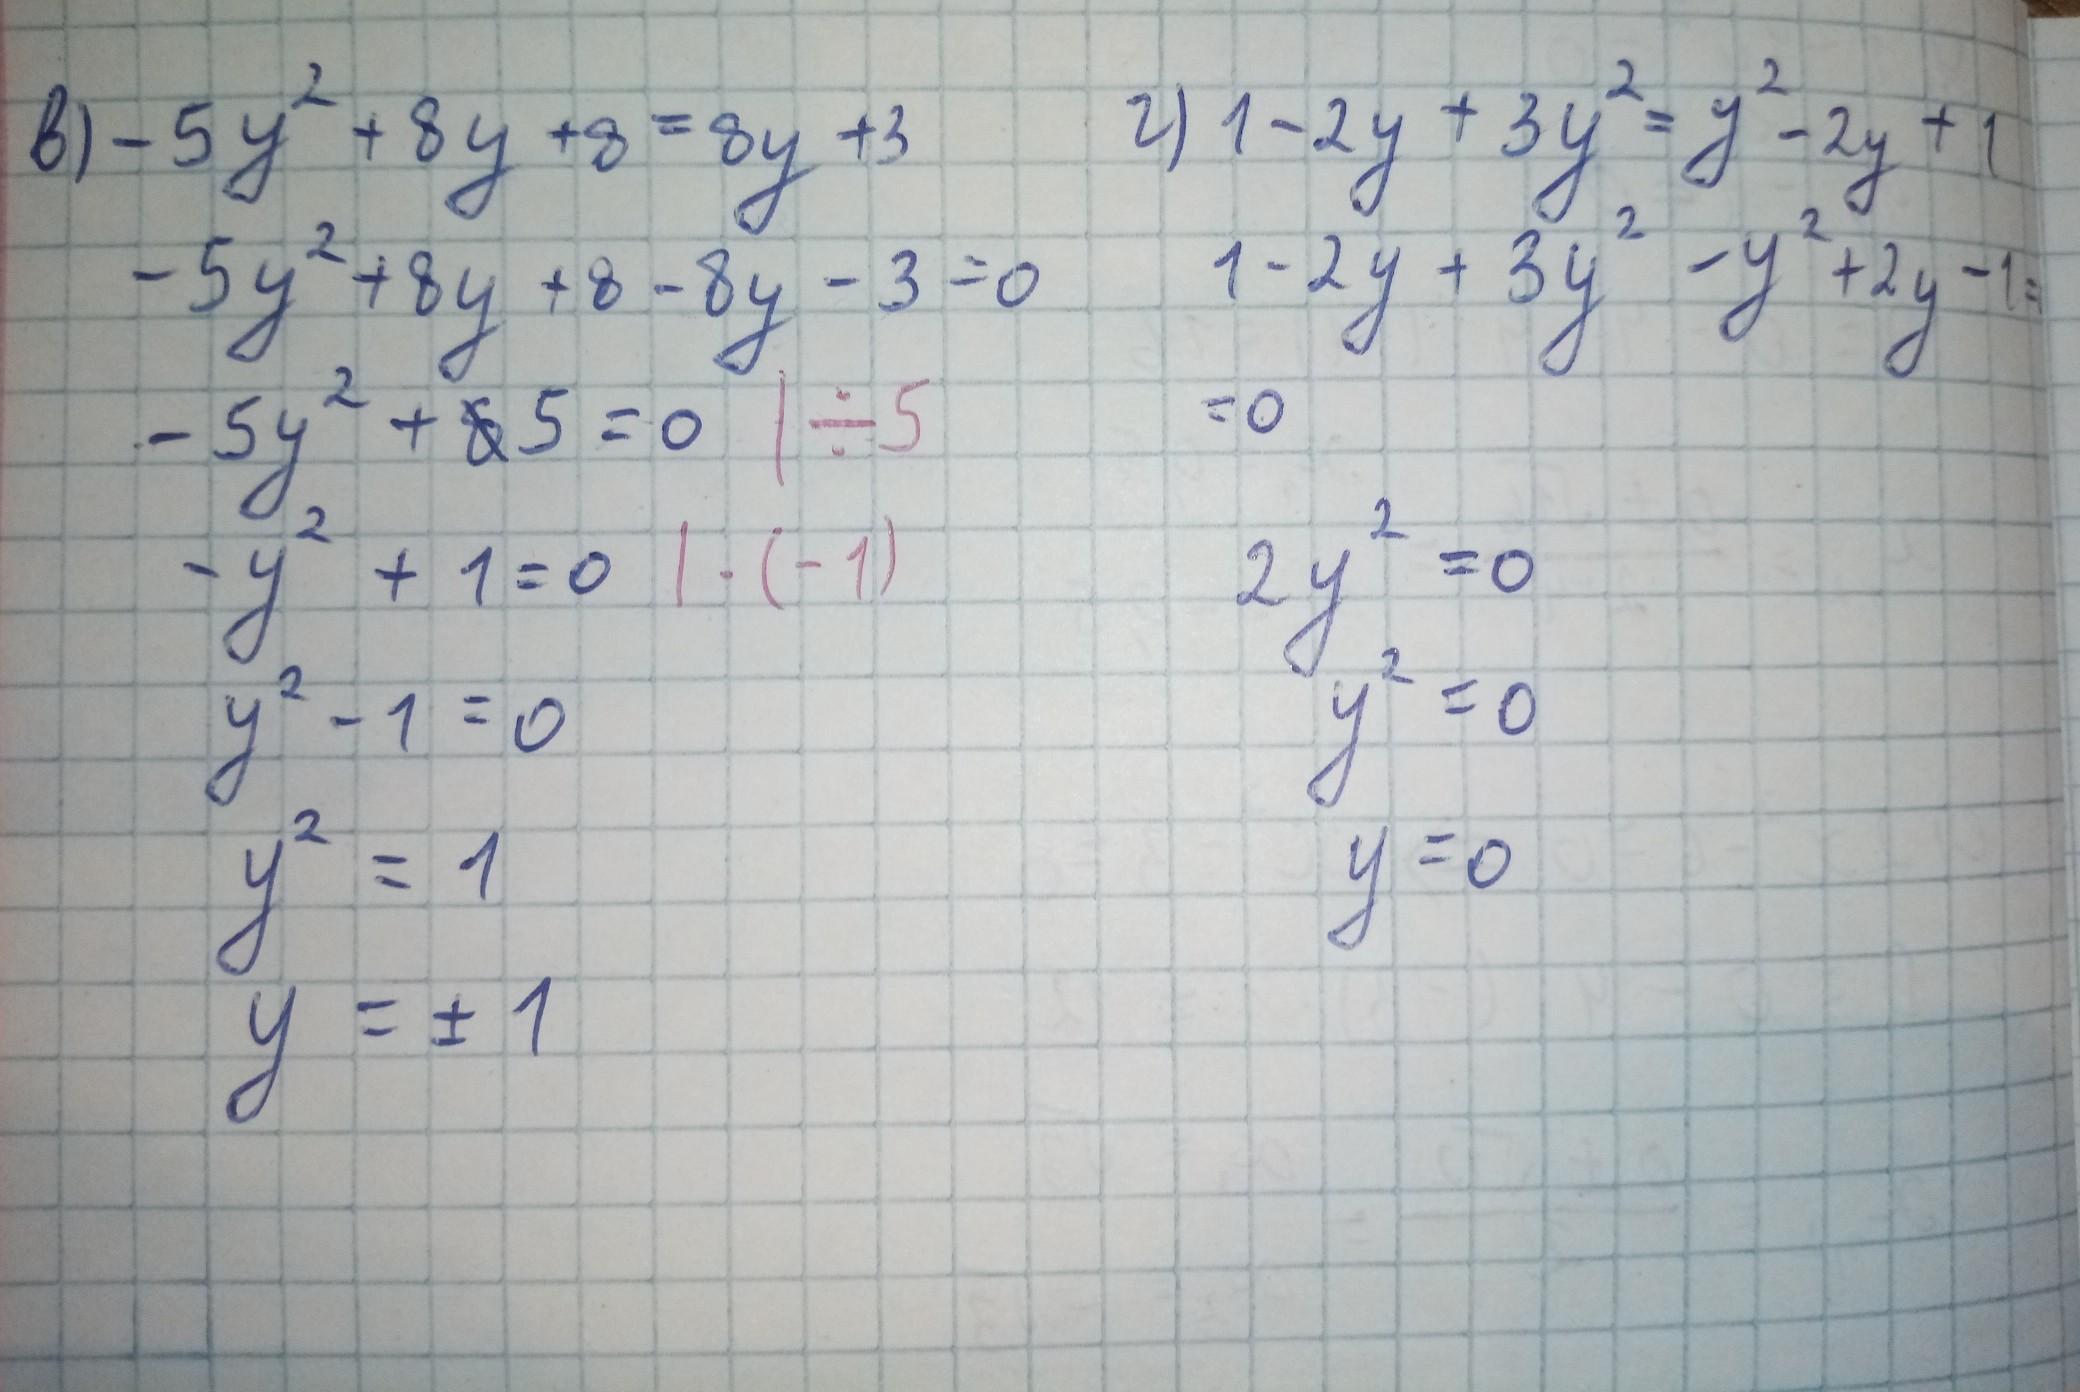 в) -5y² + 8y + 8 = 8y + 3
-5y² + 8y + 8 - 8y - 3 = 0
-5y² + 5 = 0 | ÷ 5
-y² + 1 = 0 | · (-1)
y² - 1 = 0
y² = 1
y = ± 1
г) 1 - 2y + 3y² = y² - 2y + 1
1 - 2y + 3y² - y² + 2y - 1 =
= 0
2y² = 0
y² = 0
y = 0